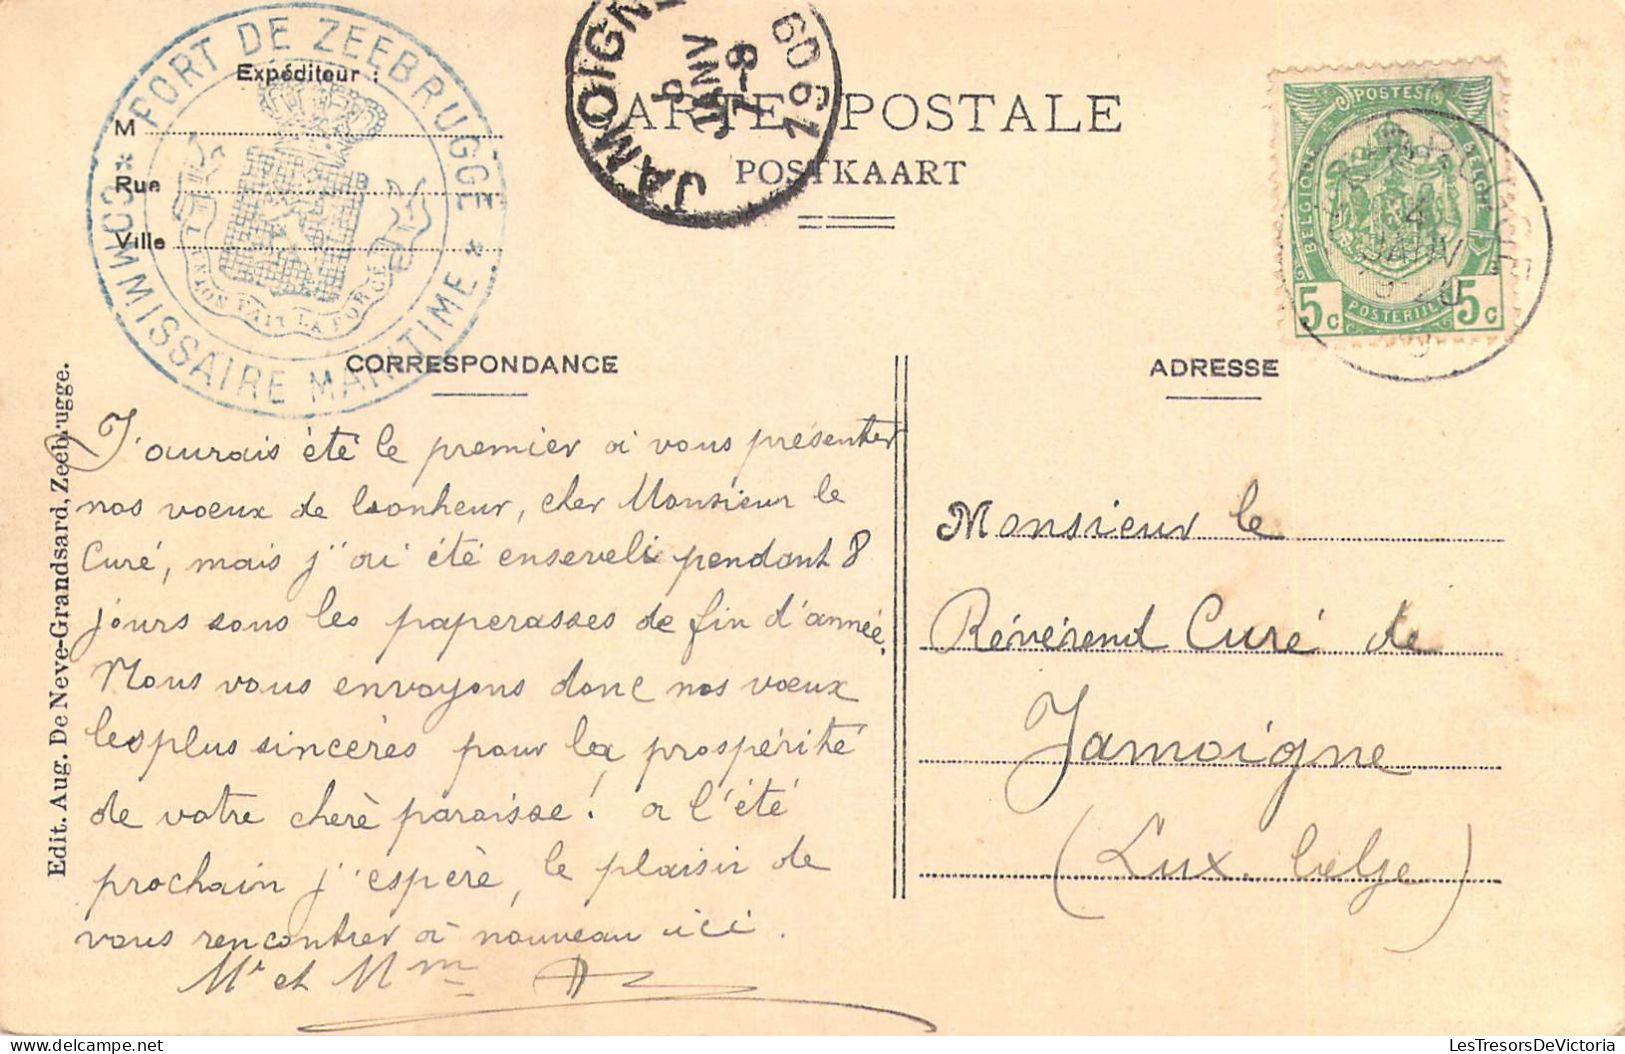 PORT DE ZEEBRUGGE
* COMMISSAIRE MARITIME *
L'UNION FAIT LA FORCE
Expéditeur :
M
Rue
Ville
JAMOIGNE
6
JANV
7-8
1909
CARTE POSTALE
POSTKAART
POSTES
BELGIQUE
BELGIE
5c
POSTERIJEN
5c
4
JANV
CORRESPONDANCE
ADRESSE
Edit. Aug. De Neve-Grandsard, Zeebrugge.
J'aurais été le premier à vous présenter
nos voeux de bonheur, cher Monsieur le
Curé, mais j'ai été enseveli pendant 8
jours sous les paperasses de fin d'année.
Nous vous envoyons donc nos voeux
les plus sincères pour la prospérité
de votre chère paroisse! a l'été
prochain j'espère, le plaisir de
vous rencontrer à nouveau ici.
Mr et Mme
Monsieur le
Révérend Curé de
Jamoigne
(Lux. belge)
LesTresorsDeVictoria.com